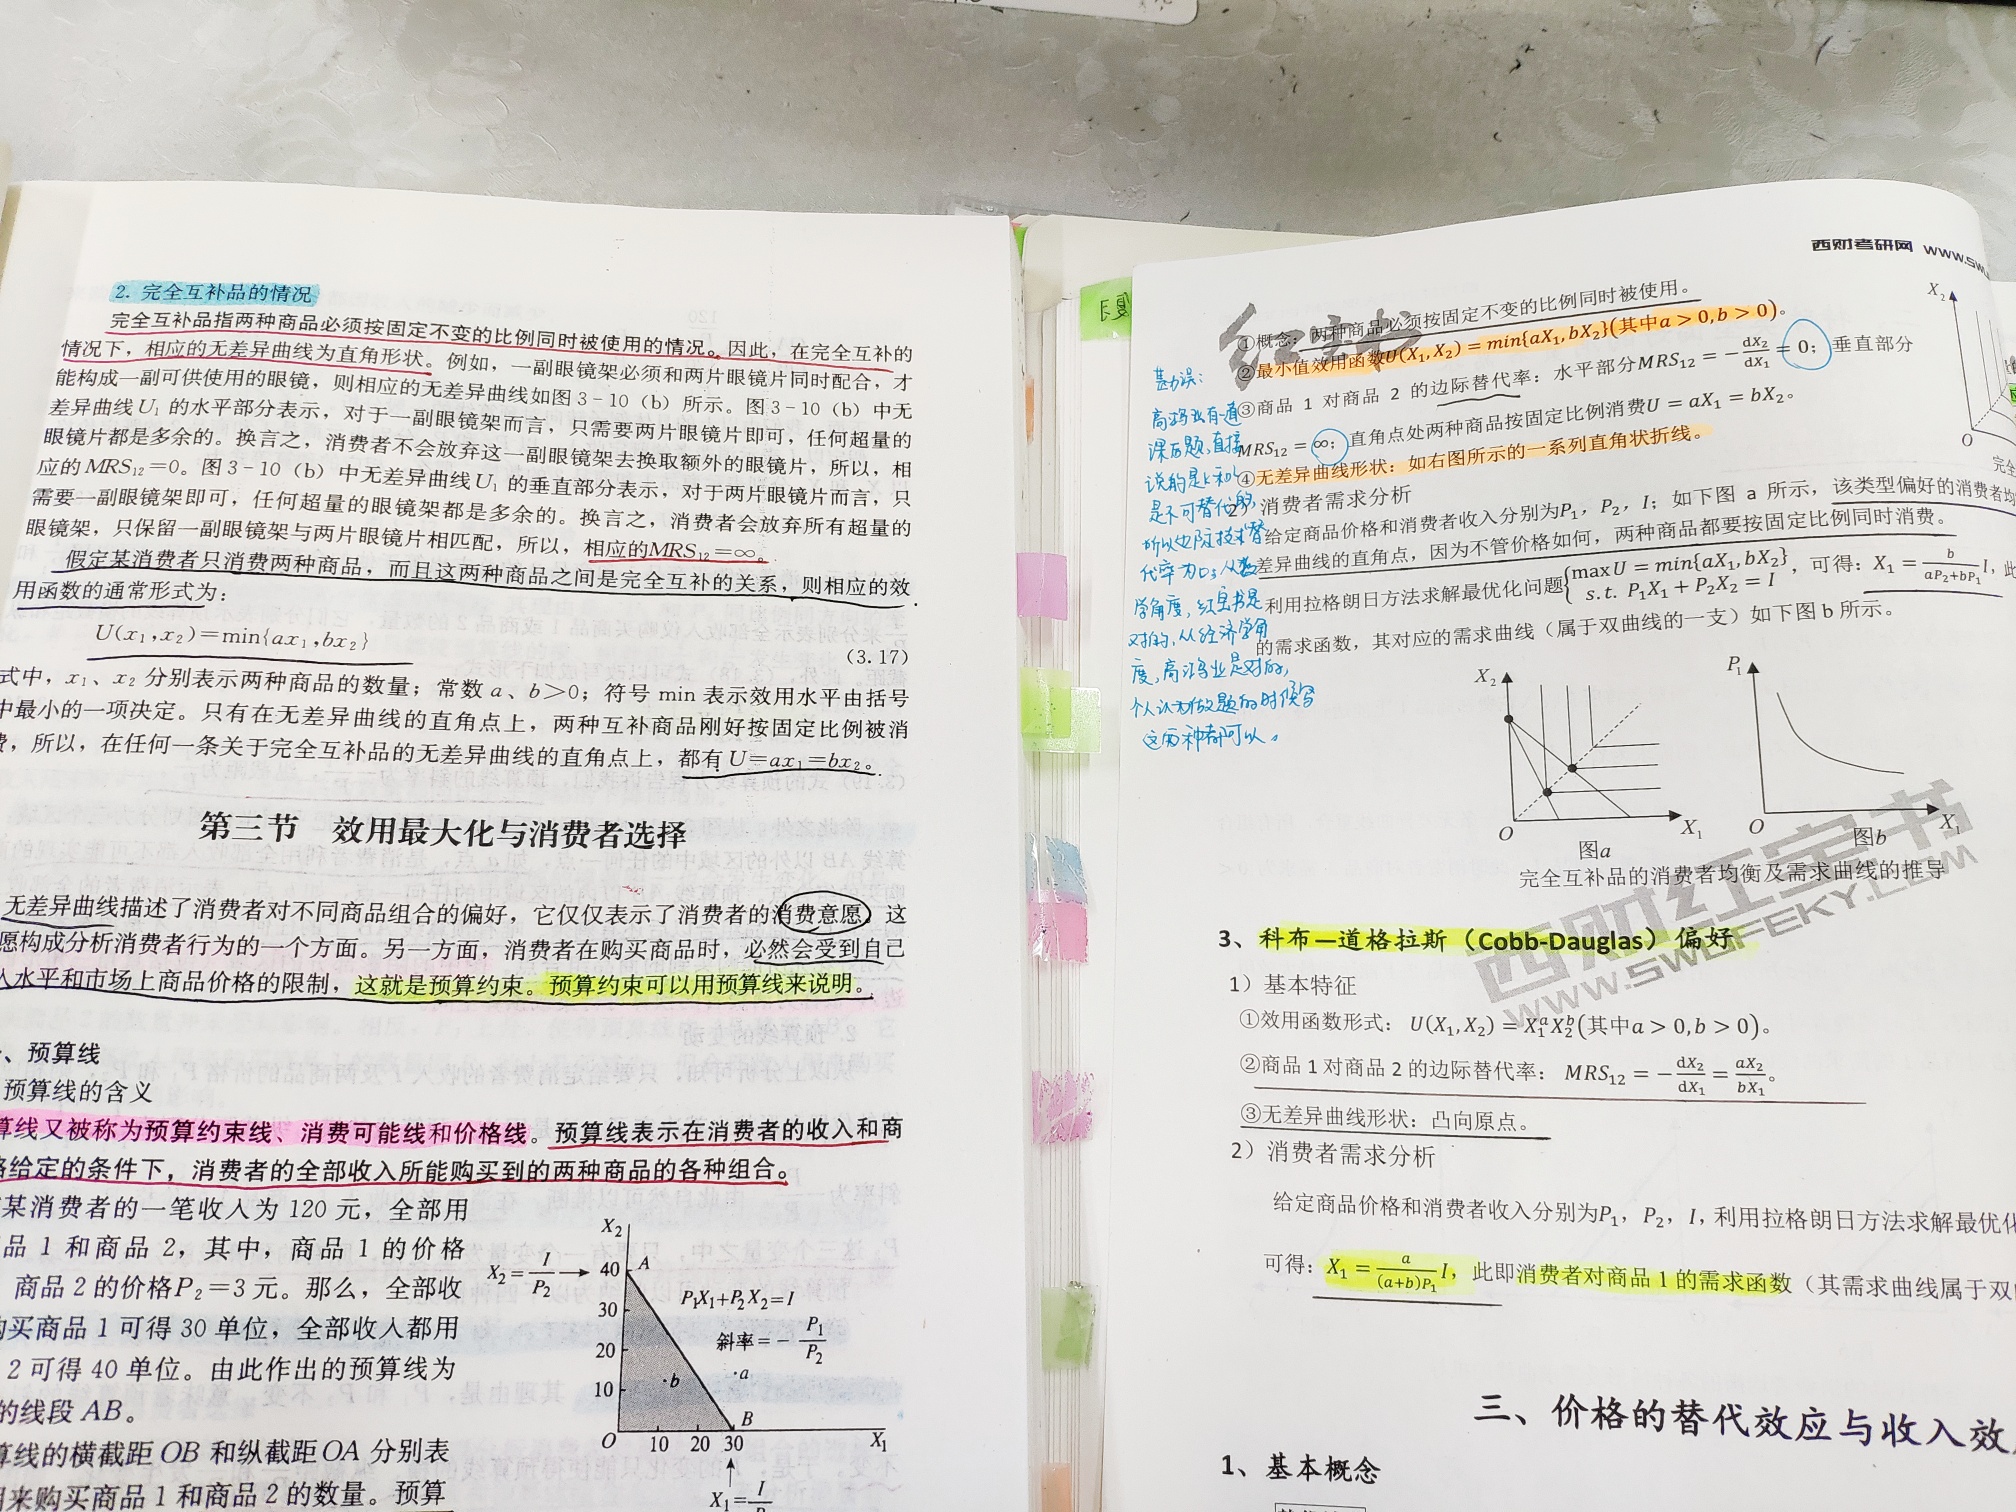 2. 完全互补品的情况
完全互补品指两种商品必须按固定不变的比例同时被使用的情况。因此，在完全互补的
情况下，相应的无差异曲线为直角形状。例如，一副眼镜架必须和两片眼镜片同时配合，才
能构成一副可供使用的眼镜，则相应的无差异曲线如图 3-10（b）所示。图 3-10（b）中无
差异曲线U₁ 的水平部分表示，对于一副眼镜架而言，只需要两片眼镜片即可，任何超量的
眼镜片都是多余的。换言之，消费者不会放弃这一副眼镜架去换取额外的眼镜片，所以，相
应的 MRS₁₂=0。图 3-10（b）中无差异曲线U₁ 的垂直部分表示，对于两片眼镜片而言，只
需要一副眼镜架即可，任何超量的眼镜架都是多余的。换言之，消费者会放弃所有超量的
眼镜架，只保留一副眼镜架与两片眼镜片相匹配，所以，相应的MRS₁₂=∞。
假定某消费者只消费两种商品，而且这两种商品之间是完全互补的关系，则相应的效
用函数的通常形式为：
U(x₁,x₂)=min{ax₁,bx₂}
(3.17)
式中，x₁、x₂ 分别表示两种商品的数量；常数 a、b>0；符号 min 表示效用水平由括号
中最小的一项决定。只有在无差异曲线的直角点上，两种互补商品刚好按固定比例被消
费，所以，在任何一条关于完全互补品的无差异曲线的直角点上，都有 U=ax₁=bx₂。
第三节 效用最大化与消费者选择
无差异曲线描述了消费者对不同商品组合的偏好，它仅仅表示了消费者的消费意愿，这
愿构成分析消费者行为的一个方面。另一方面，消费者在购买商品时，必然会受到自己
入水平和市场上商品价格的限制，这就是预算约束。预算约束可以用预算线来说明。
、预算线
预算线的含义
算线又被称为预算约束线、消费可能线和价格线。预算线表示在消费者的收入和商
格给定的条件下，消费者的全部收入所能购买到的两种商品的各种组合。
某消费者的一笔收入为 120 元，全部用
品 1 和商品 2，其中，商品 1 的价格
商品 2 的价格P₂=3 元。那么，全部收
购买商品 1 可得 30 单位，全部收入都用
2 可得 40 单位。由此作出的预算线为
的线段 AB。
算线的横截距 OB 和纵截距 OA 分别表
用来购买商品 1 和商品 2 的数量。预算
X₂
X₂=I/P₂
40 A
30
P₁X₁+P₂X₂=I
斜率=-P₁/P₂
20
·a
·b
10
B
O 10 20 30 X₁
X₁=I
西财考研网 WWW.SWU
红宝书
①概念：两种商品必须按固定不变的比例同时被使用。
②最小值效用函数U(X₁,X₂) = min{aX₁,bX₂}(其中a > 0,b > 0)。
③商品 1 对商品 2 的边际替代率：水平部分MRS₁₂ = -dX₂/dX₁ = 0；垂直部分
MRS₁₂ = ∞；直角点处两种商品按固定比例消费U = aX₁ = bX₂。
④无差异曲线形状：如右图所示的一系列直角状折线。
X₂
O
完全
勘误：
高鸿业有一道
课后题，直接
说的是L和K
是不可替代的，
所以边际技术替
代率为0，从数
学角度，红宝书是
对的，从经济学角
度，高鸿业是对的，
个人认为做题的时候写
这两种都可以。
2）消费者需求分析
给定商品价格和消费者收入分别为P₁，P₂，I；如下图 a 所示，该类型偏好的消费者均
差异曲线的直角点，因为不管价格如何，两种商品都要按固定比例同时消费。
利用拉格朗日方法求解最优化问题{max U = min{aX₁,bX₂} s.t. P₁X₁ + P₂X₂ = I，可得：X₁ = b/(aP₂+bP₁) I，此
的需求函数，其对应的需求曲线（属于双曲线的一支）如下图 b 所示。
X₂
O X₁
图a
P₁
O X₁
图b
完全互补品的消费者均衡及需求曲线的推导
西财红宝书
WWW.SWUFEKY.COM
3、科布—道格拉斯（Cobb-Dauglas）偏好
1）基本特征
①效用函数形式：U(X₁,X₂) = X₁ᵃX₂ᵇ(其中a > 0,b > 0)。
②商品 1 对商品 2 的边际替代率：MRS₁₂ = -dX₂/dX₁ = aX₂/bX₁。
③无差异曲线形状：凸向原点。
2）消费者需求分析
给定商品价格和消费者收入分别为P₁，P₂，I，利用拉格朗日方法求解最优化
可得：X₁ = a/((a+b)P₁) I，此即消费者对商品 1 的需求函数（其需求曲线属于双
三、价格的替代效应与收入效
1、基本概念